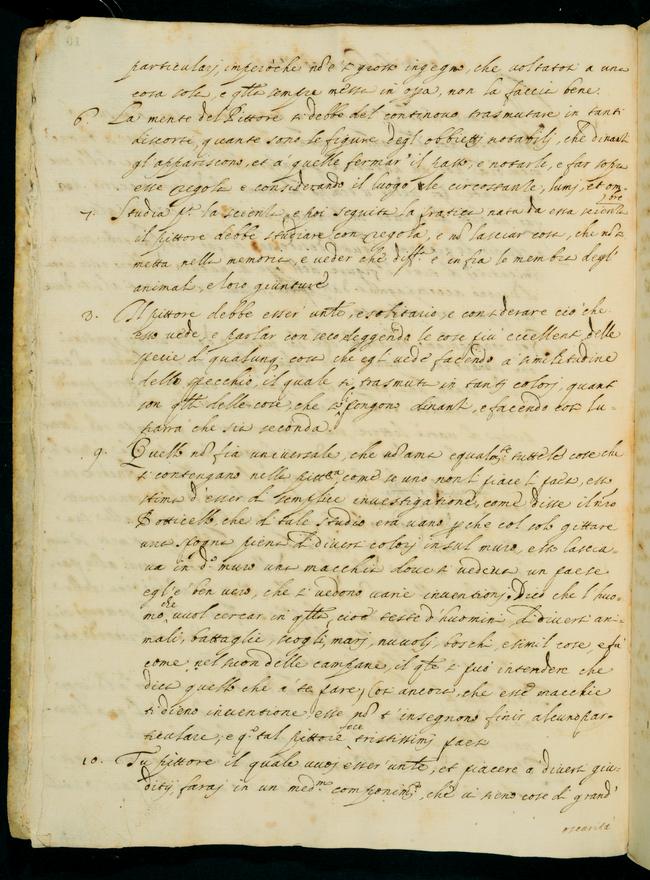 particularj, imperoche nō è sì grosso ingegno, che voltatosi a una
cosa sola, e q̄lla sempre messa in opa, non la faccia bene.
6. La mente del Pittore si debbe del continuovo trasmutare in tanti
discorsi, quante sono le figure degl'obbietti notabilj, che dinanti
gl'appariscono, et a' quelle fermar' il passo, e notarle, e far sopra
esse regole e considerando il luogo, le circostantie, lumj, et om-
bre
7. Studia p.ª la scientia, e poi seguita la pratica nata da essa scientia
il pittore debbe studiare con regola, e nō lasciar cosa, che nō si
metta nella memoria, e veder che diff.ª è infra le membra degl'
animali, e loro giunture
8. Il pittore debbe esser un.le, e solitario, e considerare ciò che
esso vede, e parlar con seco, leggendo le cose più eccellenti delle
specie di qualunq, cosa che egli vede facendo a' similitudine
dello specchio, il quale si trasmuta in tanti colorj, quanti
son q̄lli delle cose, che si pongono dinanti, e facendo così lu-
parrà che sia seconda.
9. Quello nō fia universale, che nō ama equalm.te tutte le cose che
si contengano nella pittª, come se uno non li piace li paesi, esso
stima d'esser di semplice investigatione, come disse il nr̄o
Botticello, che di tale studio era vano, p che col solo gittare
una spogna piena di diversi colorj in sul muro, esso lascia-
va in dº muro una macchia dove si vedeva un paese
egl'è ben vero, che si vedono varie inventionj. Dico che l'huo-
mo che vuol cercar in q̄lla, cioè teste d'huomini di diversi ani-
mali, battaglie, scoglj, marj, nuvolj, boschi, e simil cose, e fà
come nel suon delle campane, il q̄le si può intendere che
dica quello che a' te pare; Così ancora, che esse macchie
ti dieno inventione, esse nō t'insegnono finir alcun par-
ticulare; e q.º tal pittore fece tristissimj paesi
10. Tu pittore il quale vuoj esser un.le, et piacere a' diversi giu-
ditij, faraj in un med.mo componim.to, che vi sieno cose di grand'
oscurità